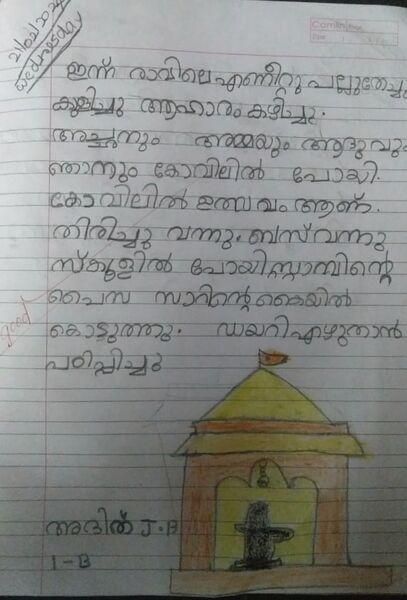 21/02/2024
wednesday
Camlin
Date
ഇന്ന് രാവിലെ എണീറ്റു പല്ലുതേച്ചു
കുളിച്ചു ആഹാരം കഴിച്ചു.
അച്ഛനും അമ്മയും ആദുവും
ഞാനും കോവിലിൽ പോയി.
കോവിലിൽ ഉത്സവം ആണ്.
തിരിച്ചു വന്നു. ബസ് വന്നു
സ്കൂളിൽ പോയി സ്റ്റാമ്പിന്റെ
പൈസ സാറിന്റെ കൈയിൽ
കൊടുത്തു. ഡയറി എഴുതാൻ
പഠിപ്പിച്ചു
good
അദിത് J.B
1-B